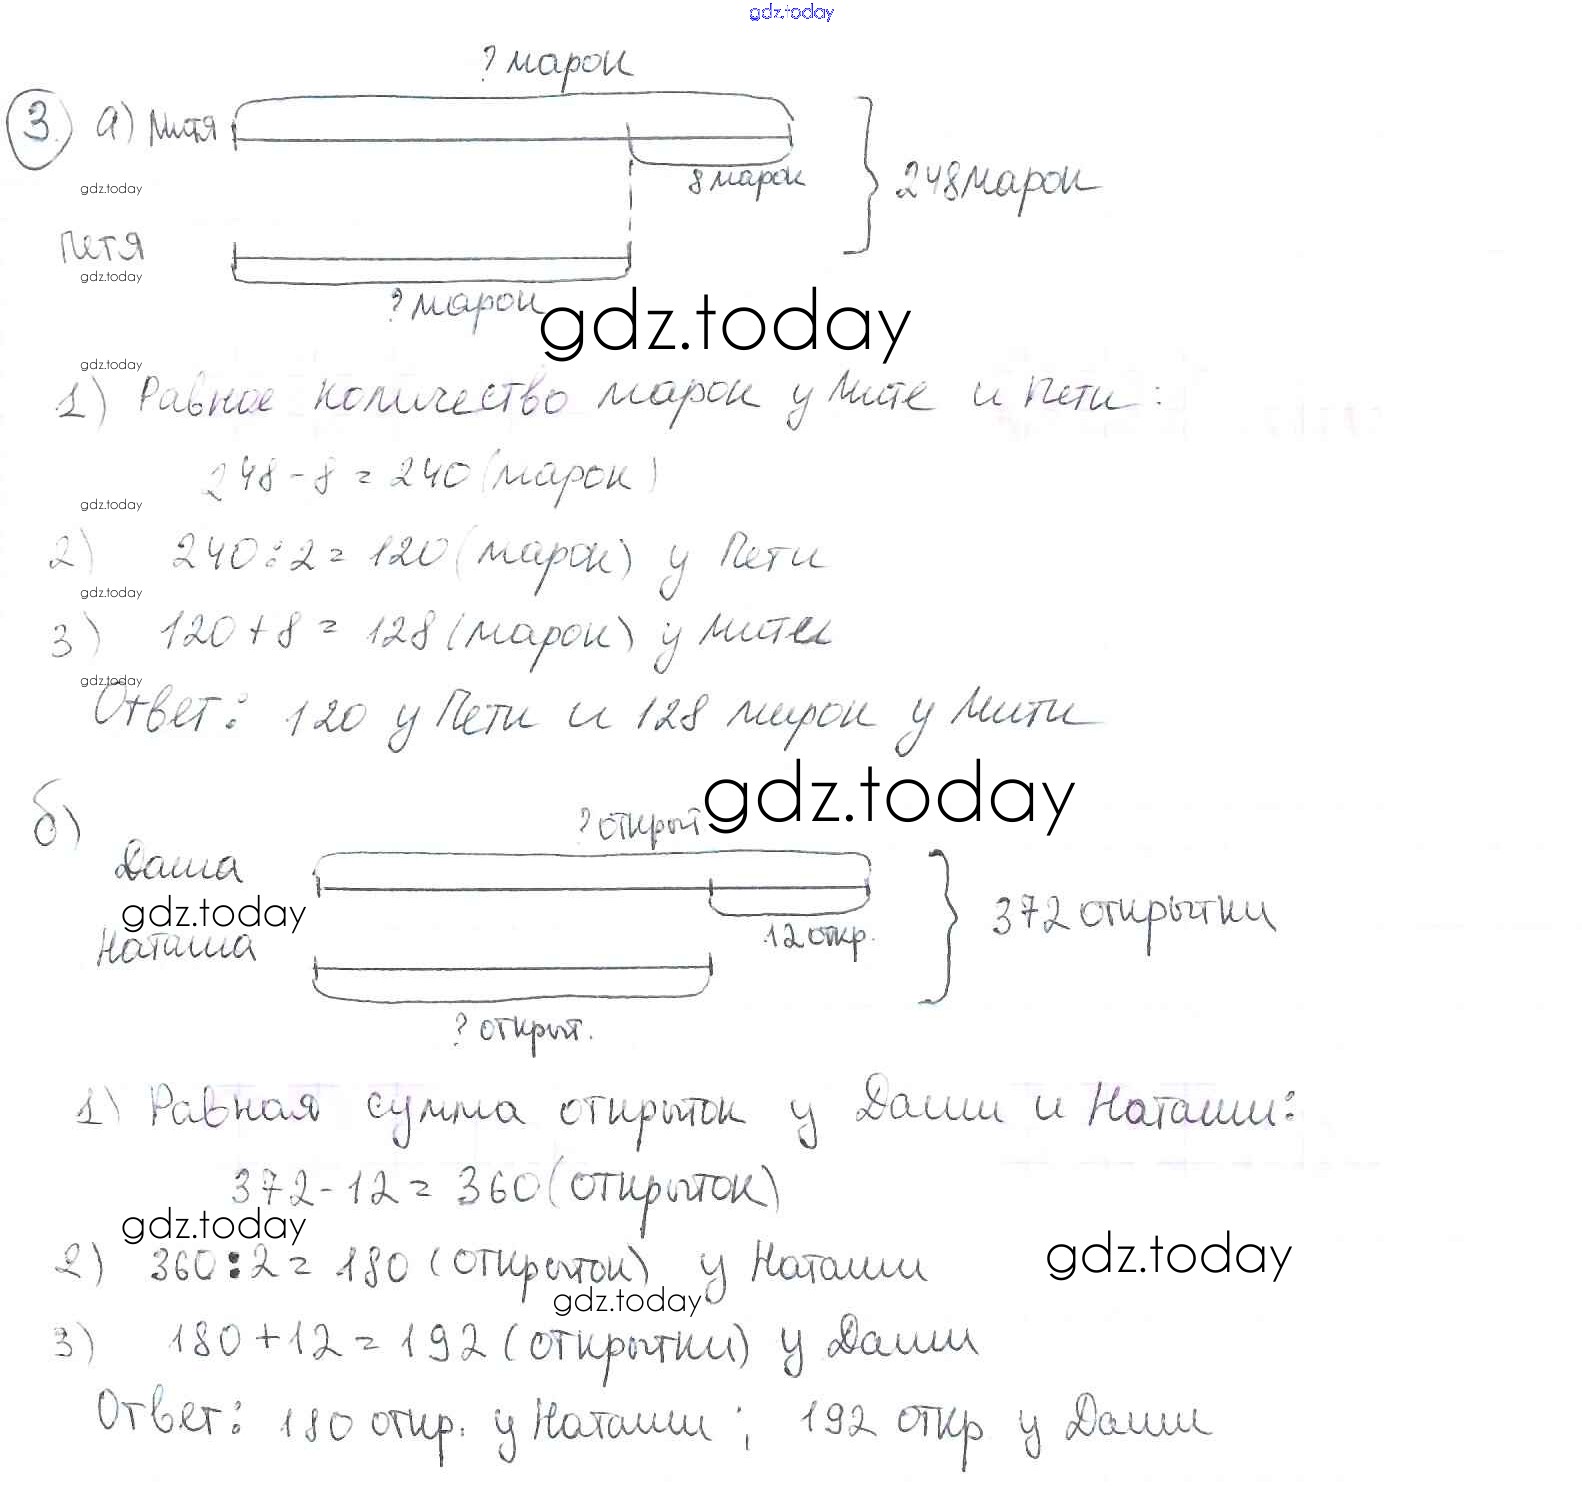 gdz.today
? марок
3. а) Митя
8 марок
248 марок
gdz.today
Петя
gdz.today
? марок
gdz.today
gdz.today
1) Равное количество марок у Мите и Пети:
248 - 8 = 240 (марок)
gdz.today
2) 240 : 2 = 120 (марок) у Пети
gdz.today
3) 120 + 8 = 128 (марок) у Мити
gdz.today
Ответ: 120 у Пети и 128 марок у Мити
gdz.today
б)
? открыт
Даша
gdz.today
12 откр.
372 открытки
Наташа
? открыт.
1) Равная сумма открыток у Даши и Наташи:
372 - 12 = 360 (открыток)
gdz.today
2) 360 : 2 = 180 (открыток) у Наташи
gdz.today
gdz.today
3) 180 + 12 = 192 (открытки) у Даши
Ответ: 180 откр. у Наташи ; 192 откр у Даши